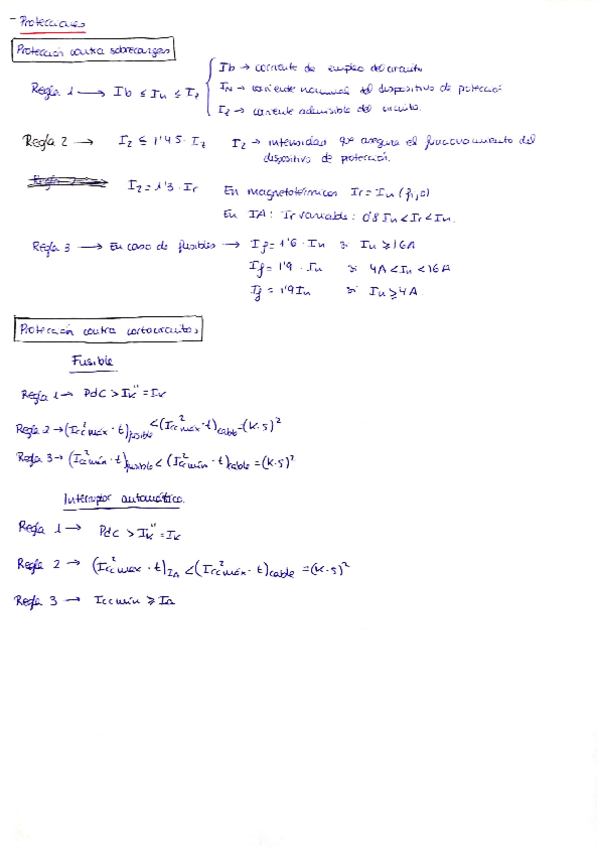 - Protecciones
Protección contra sobrecargas
Regla 1 → Ib ≤ In ≤ Iz
Ib → corriente de empleo del circuito
IN → corriente nominal del dispositivo de protección
Iz → corriente admisible del circuito.
Regla 2 → I2 ≤ 1'45 · Iz I2 → intensidad que asegura el funcionamiento del dispositivo de protección.
I2 = 1'3 · Ir En magnetotérmicos Ir = In (fijo)
En IA: Ir variable: 0'8 In < Ir < In.
Regla 3 → En caso de fusibles → If = 1'6 · In si In ≥ 16A
If = 1'9 · In si 4A < In < 16A
If = 1'9 In si In ≥ 4A.
Protección contra cortocircuitos
Fusible
Regla 1 → PdC > Ik'' = Ik
Regla 2 → (Icc²máx · t)fusible < (Icc²máx · t)cable = (K·S)²
Regla 3 → (Icc²mín · t)fusible < (Icc²mín · t)cable = (K·S)²
Interruptor automático.
Regla 1 → PdC > Ik'' = Ik
Regla 2 → (Icc²máx · t)IA < (Icc²máx · t)cable = (K·S)²
Regla 3 → Iccmín ≥ Ia